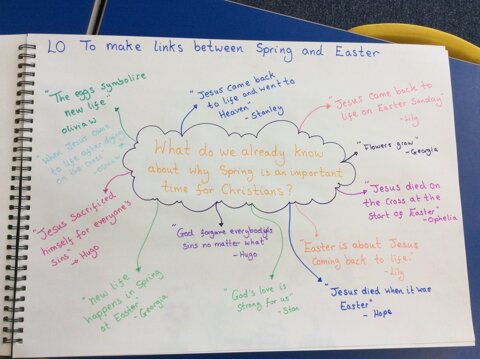 LO To make links between Spring and Easter
"The eggs symbolise
new life"
olivia w
"Jesus came back
to life and went to
Heaven"
- Stanley
"Jesus came back to
life on Easter Sunday"
- Lily
"When Jesus came
to life after dying
on the cross"
"Flowers grow"
- Georgia
What do we already know
about why Spring is an important
time for Christians?
"Jesus died on
the Cross at the
Start of Easter"
- Ophelia
"Jesus Sacrificed
himself for everyone's
Sins"
- Hugo
"God forgave everybody's
sins no matter what"
- Hugo
"Easter is about Jesus
coming back to life."
- Lily
"New life
happens in Spring
at Easter"
- Georgia
"God's love is
Strong for us"
- Stan
"Jesus died when it was
Easter"
- Hope